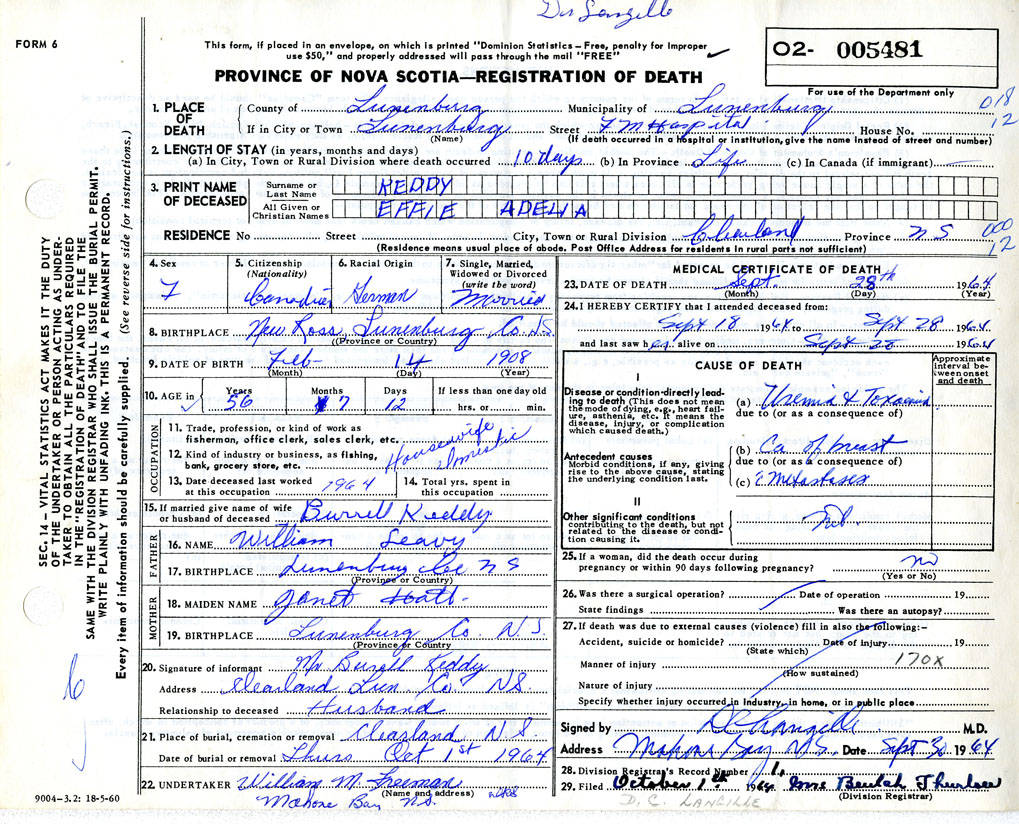 Dr Langille
FORM 6
This form, if placed in an envelope, on which is printed "Dominion Statistics – Free, penalty for Improper
use $50," and properly addressed will pass through the mail "FREE"
O2- 005481
For use of the Department only
PROVINCE OF NOVA SCOTIA—REGISTRATION OF DEATH
018
12
1. PLACE OF DEATH County of Lunenburg Municipality of Lunenburg
If in City or Town Lunenburg Street F M Hospital House No.
(Name) (If death occurred in a hospital or institution, give the name instead of street and number)
2. LENGTH OF STAY (in years, months and days)
(a) In City, Town or Rural Division where death occurred 10 days (b) In Province Life (c) In Canada (if immigrant)
3. PRINT NAME OF DECEASED
Surname or Last Name KEDDY
All Given or Christian Names EFFIE ADELIA
RESIDENCE No Street City, Town or Rural Division Clearland Province N S
000
12
(Residence means usual place of abode. Post Office Address for residents in rural parts not sufficient)
4. Sex F
5. Citizenship (Nationality) Canadian
6. Racial Origin German
7. Single, Married, Widowed or Divorced (write the word) Married
8. BIRTHPLACE New Ross Lunenburg Co N.S.
(Province or Country)
9. DATE OF BIRTH Feb 14 1908
(Month) (Day) (Year)
10. AGE in Years 56 Months 7 Days 12 If less than one day old
hrs. or min.
OCCUPATION
11. Trade, profession, or kind of work as
fisherman, office clerk, sales clerk, etc. Housewife
12. Kind of industry or business, as fishing,
bank, grocery store, etc. domestic
13. Date deceased last worked
at this occupation 1964
14. Total yrs. spent in
this occupation
15. If married give name of wife
or husband of deceased Burrell Keddy
FATHER
16. NAME William Leavy
17. BIRTHPLACE Lunenburg Co N S
(Province or Country)
MOTHER
18. MAIDEN NAME Janet Hatt
19. BIRTHPLACE Lunenburg Co. N.S.
(Province or Country)
20. Signature of informant Mr Burrell Keddy
Address Clearland Lun Co N.S.
Relationship to deceased Husband
21. Place of burial, cremation or removal Clearland N.S.
Date of burial or removal Thurs Oct 1st 1964
22. UNDERTAKER William M. Freeman
(Name and address)
Mahone Bay N.S.
MEDICAL CERTIFICATE OF DEATH
23. DATE OF DEATH Sept. 28th 1964
(Month) (Day) (Year)
24. I HEREBY CERTIFY that I attended deceased from:
Sept 18 1964 to Sept 28 1964
and last saw her alive on Sept 28 1964
CAUSE OF DEATH
Approximate interval between onset and death
I
Disease or condition directly leading to death (This does not mean
the mode of dying, e.g., heart failure, asthenia, etc. It means the
disease, injury, or complication
which caused death.)
(a) Uremia & Toxaemia
due to (or as a consequence of)
Antecedent causes
Morbid conditions, if any, giving
rise to the above cause, stating
the underlying condition last.
(b) Ca of breast
due to (or as a consequence of)
(c) c Metastases
II
Other significant conditions
contributing to the death, but not
related to the disease or condition causing it.
Nil
25. If a woman, did the death occur during
pregnancy or within 90 days following pregnancy? no
(Yes or No)
26. Was there a surgical operation? Date of operation 19
State findings Was there an autopsy?
27. If death was due to external causes (violence) fill in also the following:–
Accident, suicide or homicide? Date of injury 19
(State which)
170X
Manner of injury
(How sustained)
Nature of injury
Specify whether injury occurred in Industry, in home, or in public place
Signed by D C Langille M.D.
Address Mahone Bay N.S. Date Sept 30 1964
28. Division Registrar's Record Number
29. Filed October 1th 1964 Mrs Beulah Thurlow
(Division Registrar)
D. C. LANGILLE
SEC. 14 – VITAL STATISTICS ACT MAKES IT THE DUTY
OF THE UNDERTAKER OR PERSON ACTING AS UNDERTAKER
TO OBTAIN ALL THE PARTICULARS REQUIRED
IN THE "REGISTRATION OF DEATH" AND TO FILE THE
SAME WITH THE DIVISION REGISTRAR WHO SHALL ISSUE THE BURIAL PERMIT.
WRITE PLAINLY WITH UNFADING INK. THIS IS A PERMANENT RECORD.
Every item of information should be carefully supplied. (See reverse side for instructions.)
9004-3.2: 18-5-60